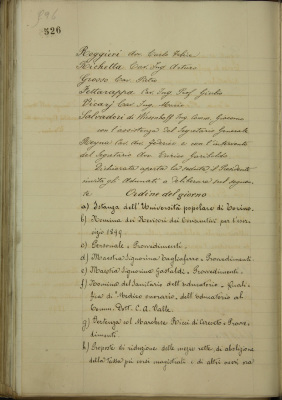 526
526
Reggiori Avv. Carlo Felice
Richetta Cav. Ing. Arturo
Grosso Cav. Pietro
Tettarappa Cav. Ing. Prof. Giulio
Vicarj Cav. Ing. Mario
Salvadori di Wiesenhoff Ing. Comm. Giacomo
con l'assistenza del Segretario Generale
Regine Cav. Avv. e con l'intervento
del Segretario Avv. Enrico Garibaldi
Dichiarata aperta la seduta il Presidente
invita gli Adunati a deliberare sul seguen-
te Ordine del giorno
a) Istanza dell'Università popolare di Torino.
b) Nomina dei Revisori dei Conti per l'eser-
cizio 1899
c) Personale - Provvedimenti.
d) Maestra Signorina Tagliaferro - Provvedimenti.
e) Maestra Signorina Gastaldi - Provvedimenti.
f) Nomina del Sanitario dell'educatorio - Quali-
fica di "Medico onorario" dell'educatorio al
Comm. Dott. C. A. Valle
g) Vertenza col Marchese Ricci di Cereseto - Provve-
dimenti.
h) Proposte di riduzione delle mezze rette, di abolizione
della tassa pei corsi magistrali e di altri oneri ora